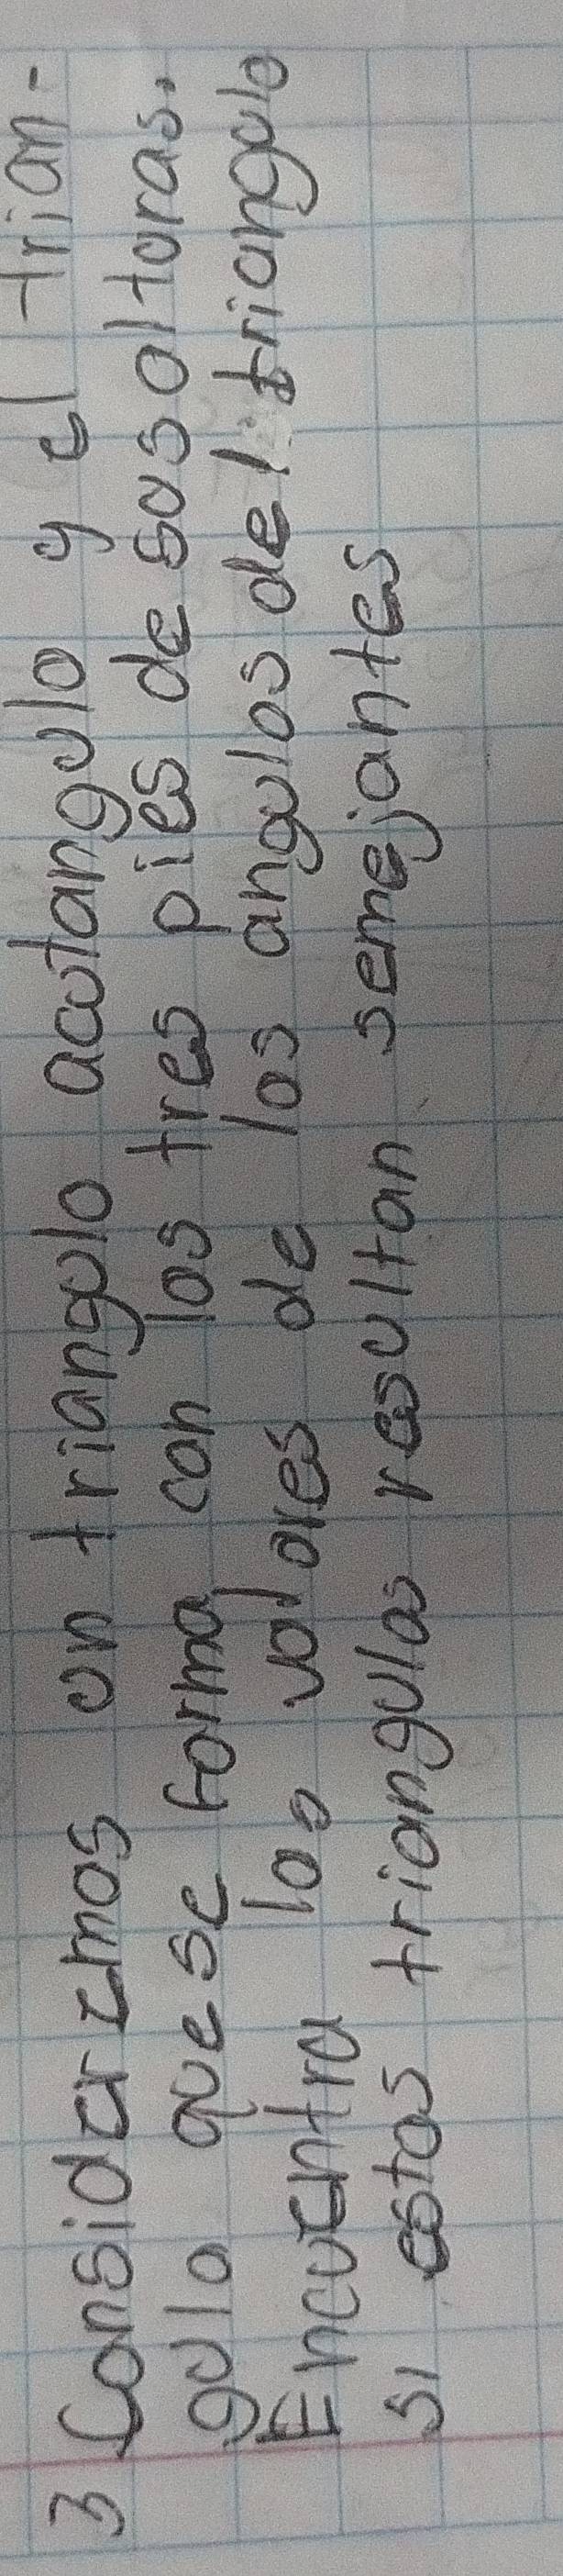 3 Consideremos un triangulo acutangulo y el trian-
gulo que se forma con los tres pies de sus alturas.
Encuentra los valores de los angulos del triangulo
si estos triangulos resultan semejantes